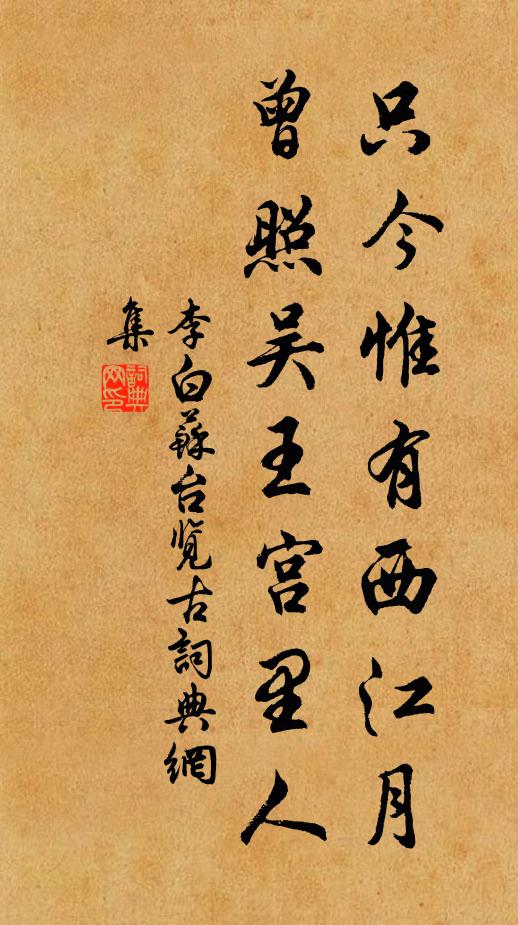 只今惟有西江月
曾照吴王宫里人
李白蘇台览古詞典網
集
詞典
网印